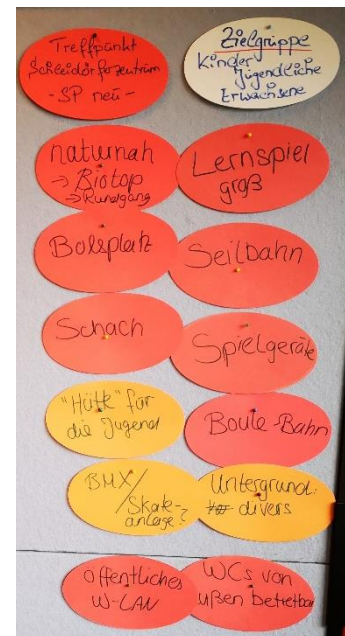 Treffpunkt
Schleidörferzentrum
- SP neu -
Zielgruppe
Kinder
Jugendliche
Erwachsene
naturnah
→ Biotop
→ Rundgang
Lernspiel
groß
Bolzplatz
Seilbahn
Schach
Spielgeräte
"Hütte" für
die Jugend
Boule-Bahn
BMX/
Skate-
anlage?
Untergrund:
divers
öffentliches
W-LAN
WCs von
außen betretbar